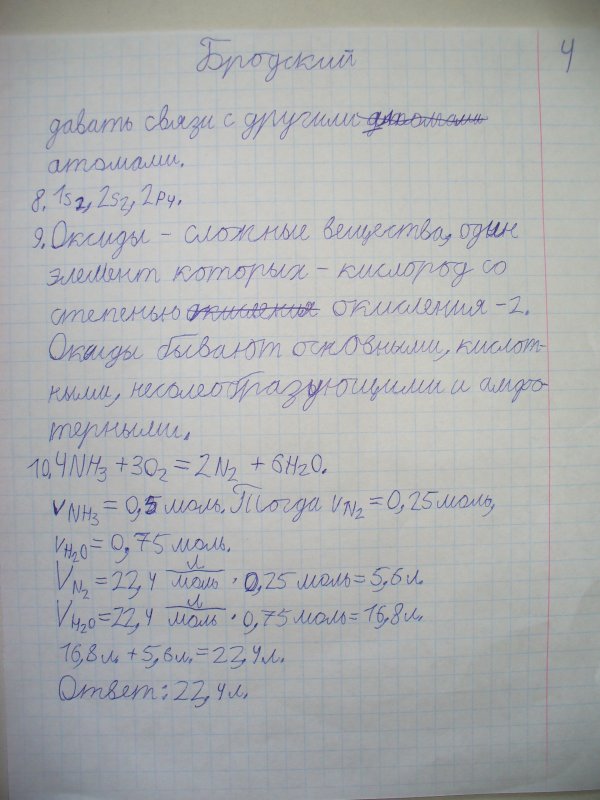 Бродский
4
давать связи с другими атомами
атомами.
8. 1s₂, 2s₂, 2p₄.
9. Оксиды – сложные вещества, один
элемент которых – кислород со
степенью окисления окисления –2.
Оксиды бывают основными, кислот-
ными, несолеобразующими и амфо-
терными.
10. 4NH₃ + 3O₂ = 2N₂ + 6H₂O.
ν NH₃ = 0,5 моль. Тогда ν N₂ = 0,25 моль,
ν H₂O = 0,75 моль.
V N₂ = 22,4 л/моль · 0,25 моль = 5,6 л.
V H₂O = 22,4 л/моль · 0,75 моль = 16,8 л.
16,8 л. + 5,6 л. = 22,4 л.
Ответ: 22,4 л.